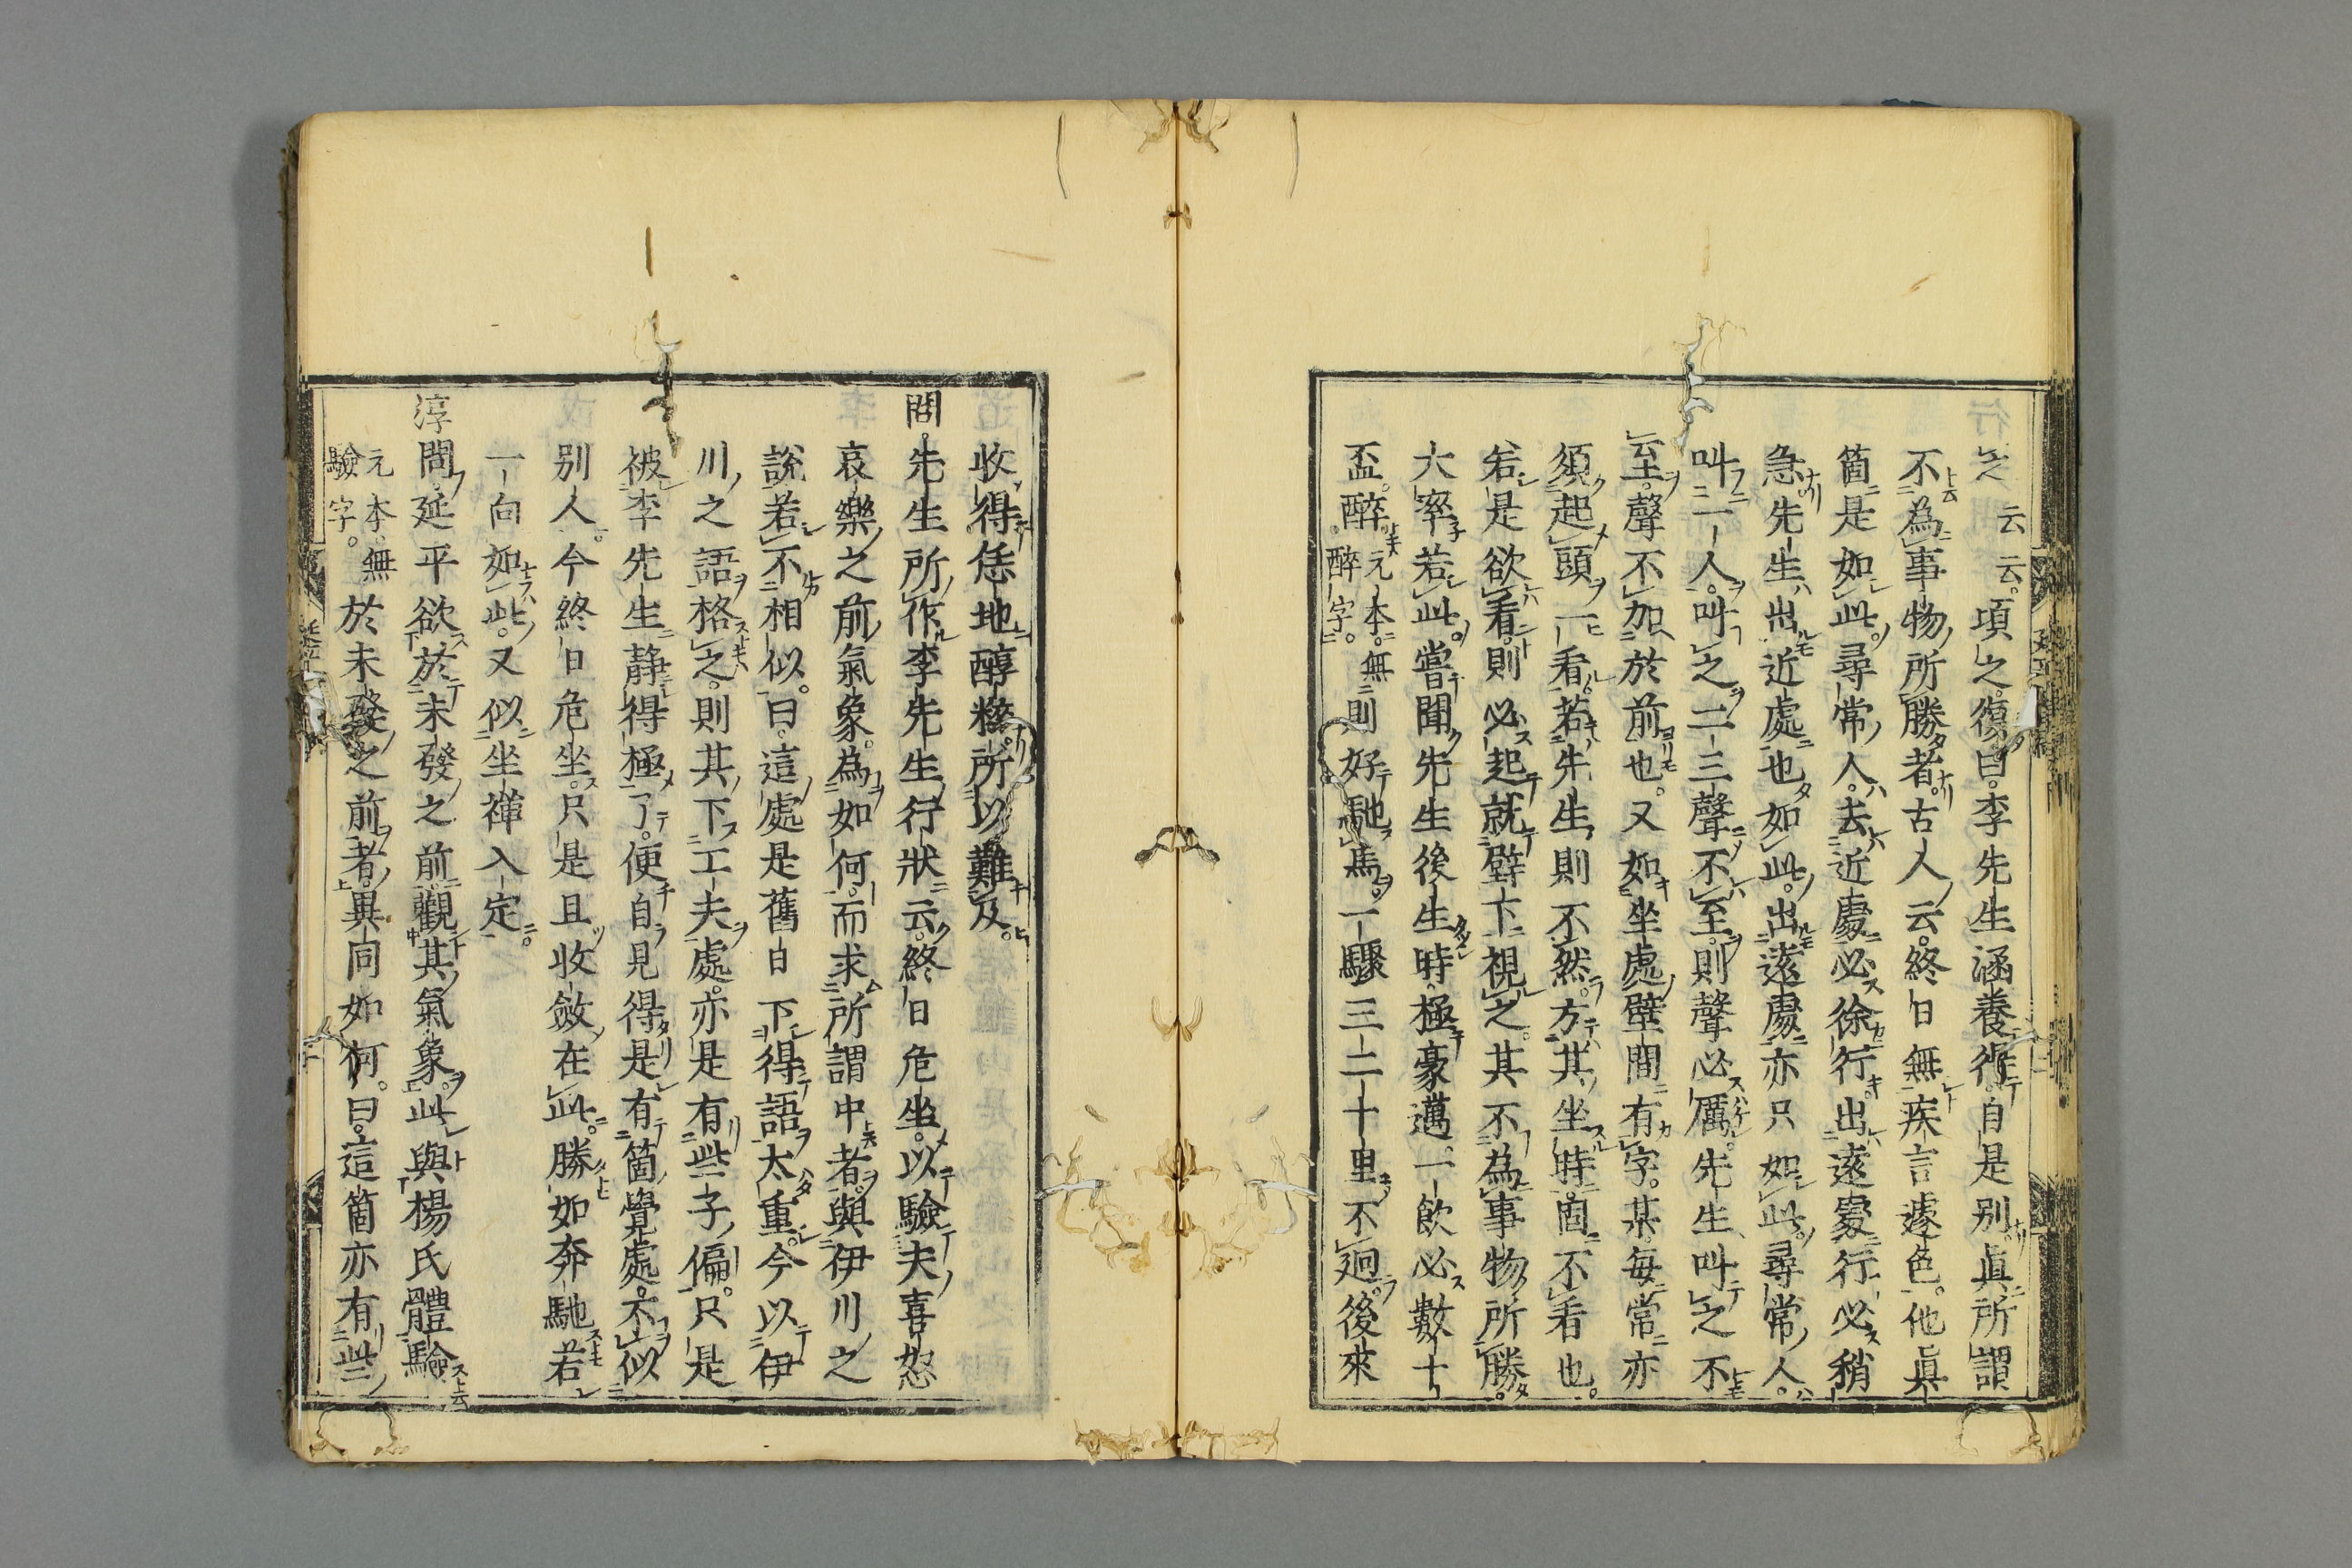 云云。項之。復曰。李先生涵養得。自是別真所謂
不為事物所勝者。古人云。終日無疾言遽色。他真
箇是如此。尋常人。去近處必徐行。出遠處行必稍
急。先生出近處也如此。出遠處亦只如此。尋常人。
叫一人。叫之二三聲不至。則聲必厲。先生叫之不
至。聲不加於前也。又如坐處壁間有字。某每常亦
須起頭一看。若先生則不然。方其坐時。固不看也。
若是欲看。則必起就壁下視之。其不為事物所勝。
大率若此。嘗聞先生後生時。極豪邁。一飲必數十
盃。醉。元本。無醉字。則好馳馬。一驟三二十里不廻。後來
收得恁地醇粹。所以難及。
問。先生所作李先生行狀云。終日危坐。以驗夫喜怒
哀樂之前氣象。為如何。而求所謂中者。與伊川之
說若不相似。曰。這處是舊日下得語太重。今以伊
川之語格之。則其下工夫處。亦是有些子偏。只是
被李先生靜得極了。便自見得是有箇覺處。不似
別人今終日危坐。只是且收斂在此。勝如奔馳若
一向如此。又似坐禪入定。
淳問。延平欲於未發之前觀其氣象。此與楊氏體驗
元本。無驗字。於未發之前者。異同如何。曰。這箇亦有些